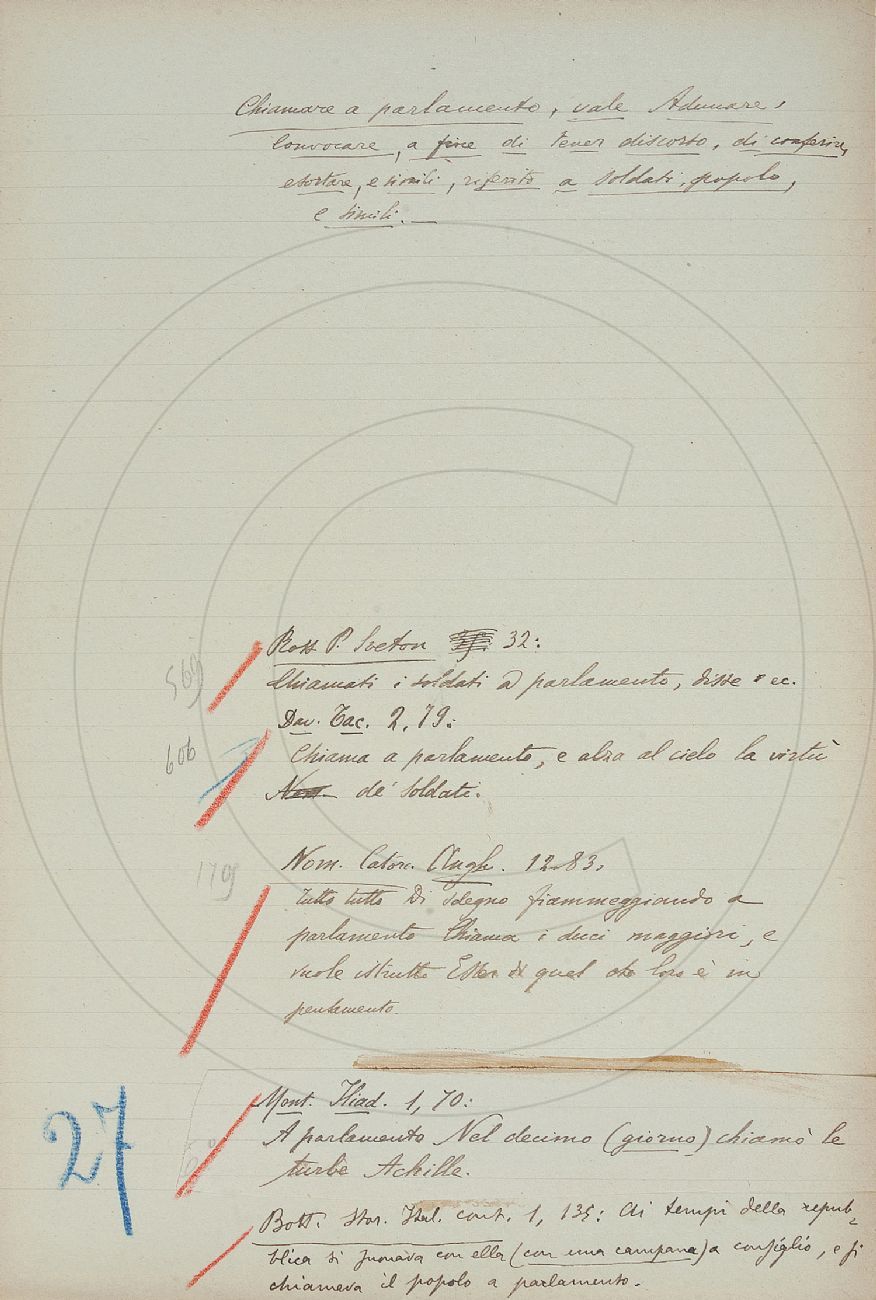 Chiamare a parlamento, vale Adunare,
Convocare, a fine di tener discorso, di conferire,
esortare, e simili, riferito a soldati, popolo,
e simili. —
569
Ross. P. Sveton 32:
Chiamati i soldati a parlamento, disse ec.
Dav. Tac. 2, 79:
606
Chiama a parlamento, e alza al cielo la virtù
de' soldati.
Nom. Cator. Angh. 12. 83.
179
Tutto tutto Di sdegno fiammeggiando a
parlamento Chiama i duci maggiori, e
vuole istrutto Esser di quel che loro è in
pensamento.
27
Mont. Iliad. 1, 70:
A parlamento Nel decimo (giorno) chiamò le
turbe Achille.
Bott. Stor. Ital. cont. 1, 135: Ai tempi della repub-
blica si suonava con ella (con una campana) a consiglio, e si
chiamava il popolo a parlamento.